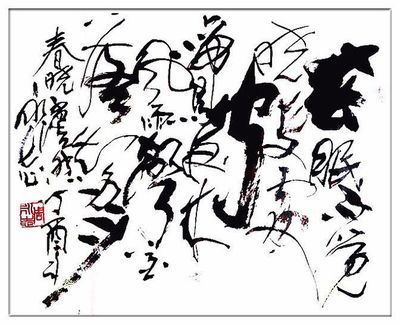 春眠不觉
晓处处闻
啼鸟夜来
风雨声花
落知多少
春晓孟浩然丁酉年